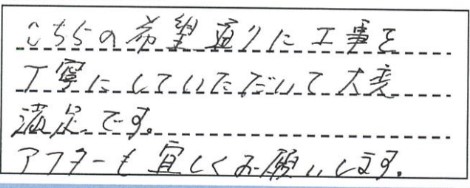 こちらの希望通りに工事を
丁寧にしていただいて大変
満足です。
アフターも宜しくお願いします。